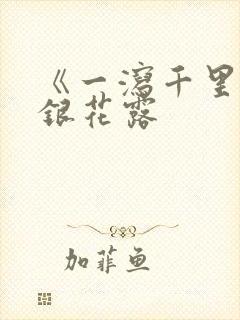 《一瀉千里
銀花露
加菲鱼